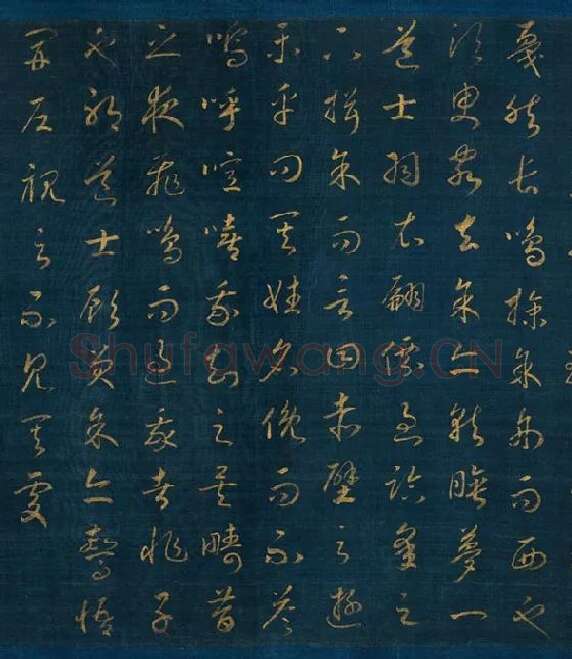 戛然長鳴掠余舟而西也
須臾客去余亦就睡夢一
道士羽衣翩僊過臨皋之
下揖余而言曰赤壁之遊
樂乎問其姓名俛而不答
嗚呼噫嘻我知之矣疇昔
之夜飛鳴而過我者非子
也耶道士顧笑余亦驚悟
開戶視之不見其處
Shufawang.CN